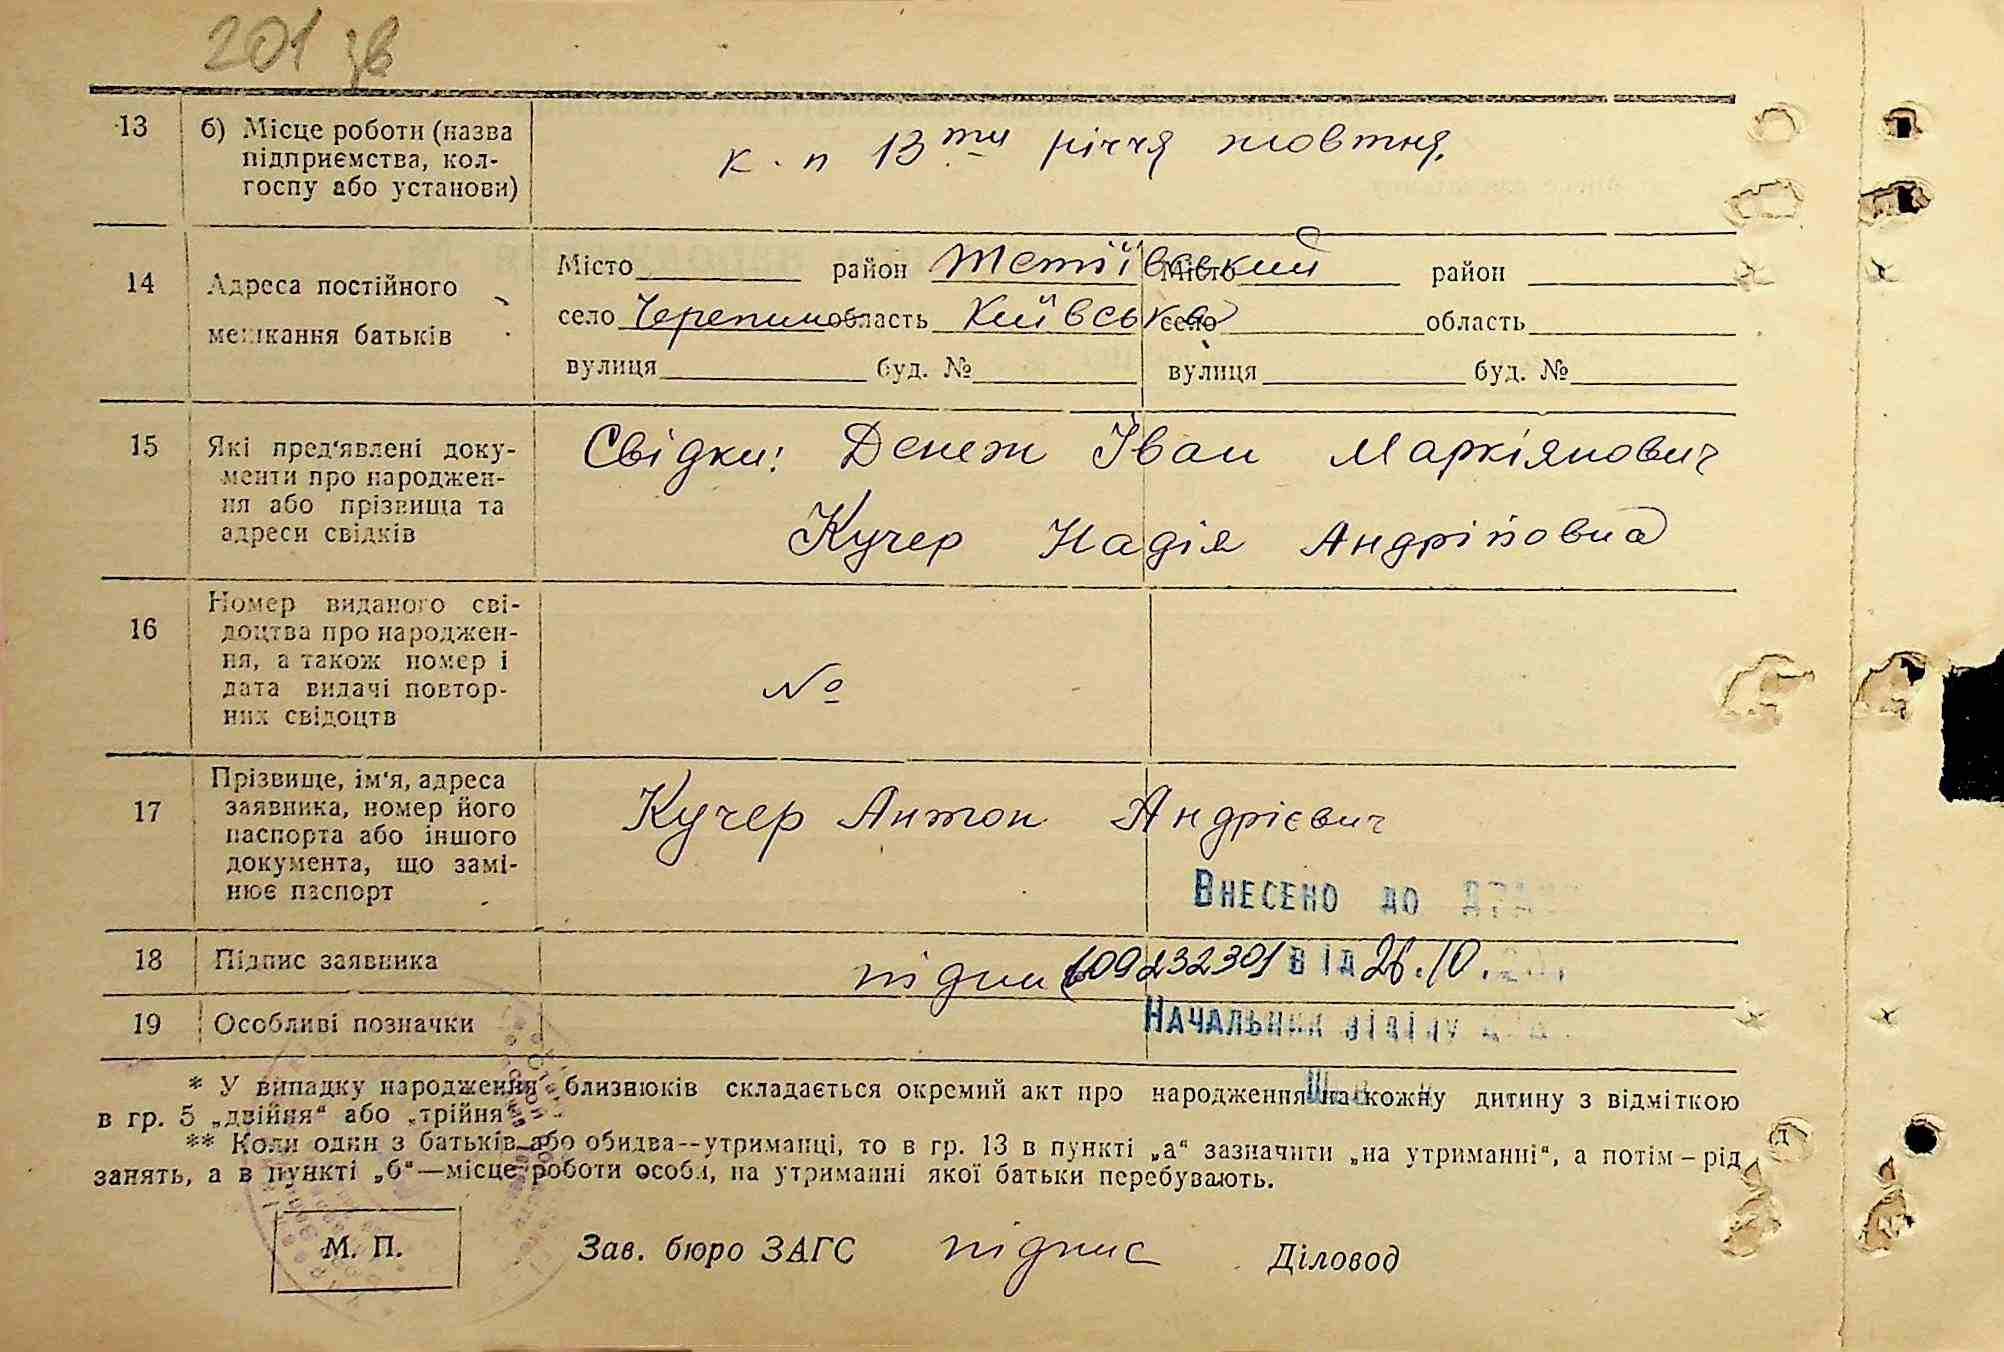 201 зв
13 б) Місце роботи (назва підприємства, кол-
госпу або установи)
к. п 13ти річчя жовтня.
14 Адреса постійного
мешкання батьків
Місто район Тетіївський Місто район
село Черепин область Київська село область
вулиця буд. № вулиця буд. №
15 Які пред'явлені доку-
менти про народжен-
ня або прізвища та
адреси свідків
Свідки: Денеж Іван Маркіянович
Кучер Надія Андріївна
16 Номер виданого сві-
доцтва про народжен-
ня, а також номер і
дата видачі повтор-
них свідоцтв
№
17 Прізвище, ім'я, адреса
заявника, номер його
паспорта або іншого
документа, що замі-
нює паспорт
Кучер Антон Андрієвич
Внесено до
18 Підпис заявника
підпис 09232301 від 26.10.
19 Особливі позначки
Начальник відділу
* У випадку народження близнюків складається окремий акт про народження на кожну дитину з відміткою
в гр. 5 „двійня“ або „трійня“.
** Коли один з батьків або обидва--утриманці, то в гр. 13 в пункті „а“ зазначити „на утриманні“, а потім – рід
занять, а в пункті „б“—місце роботи особи, на утриманні якої батьки перебувають.
М. П. Зав. бюро ЗАГС підпис Діловод